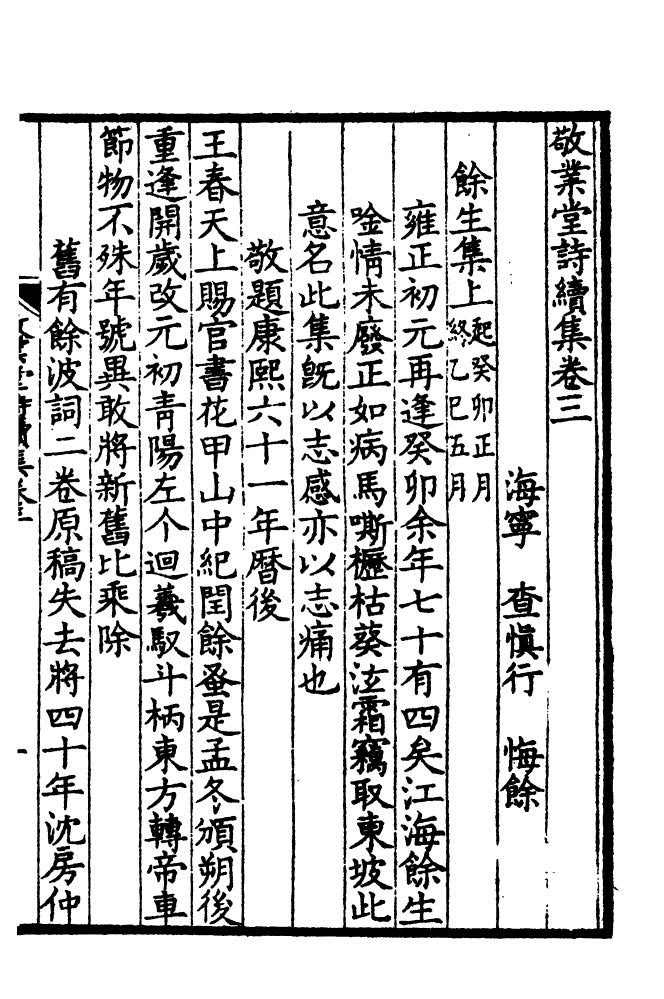 敬業堂詩續集卷三
海寧　查慎行　悔餘
餘生集上起癸卯正月終乙巳五月
雍正初元再逢癸卯余年七十有四矣江海餘生
唫情未廢正如病馬嘶櫪枯葵泣霜竊取東坡此
意名此集旣以志感亦以志痛也
敬題康熙六十一年曆後
王春天上賜官書花甲山中紀閏餘蚤是孟冬頒朔後
重逢開歲改元初青陽左个迴羲馭斗柄東方轉帝車
節物不殊年號異敢將新舊比乘除
舊有餘波詞二卷原稿失去將四十年沈房仲